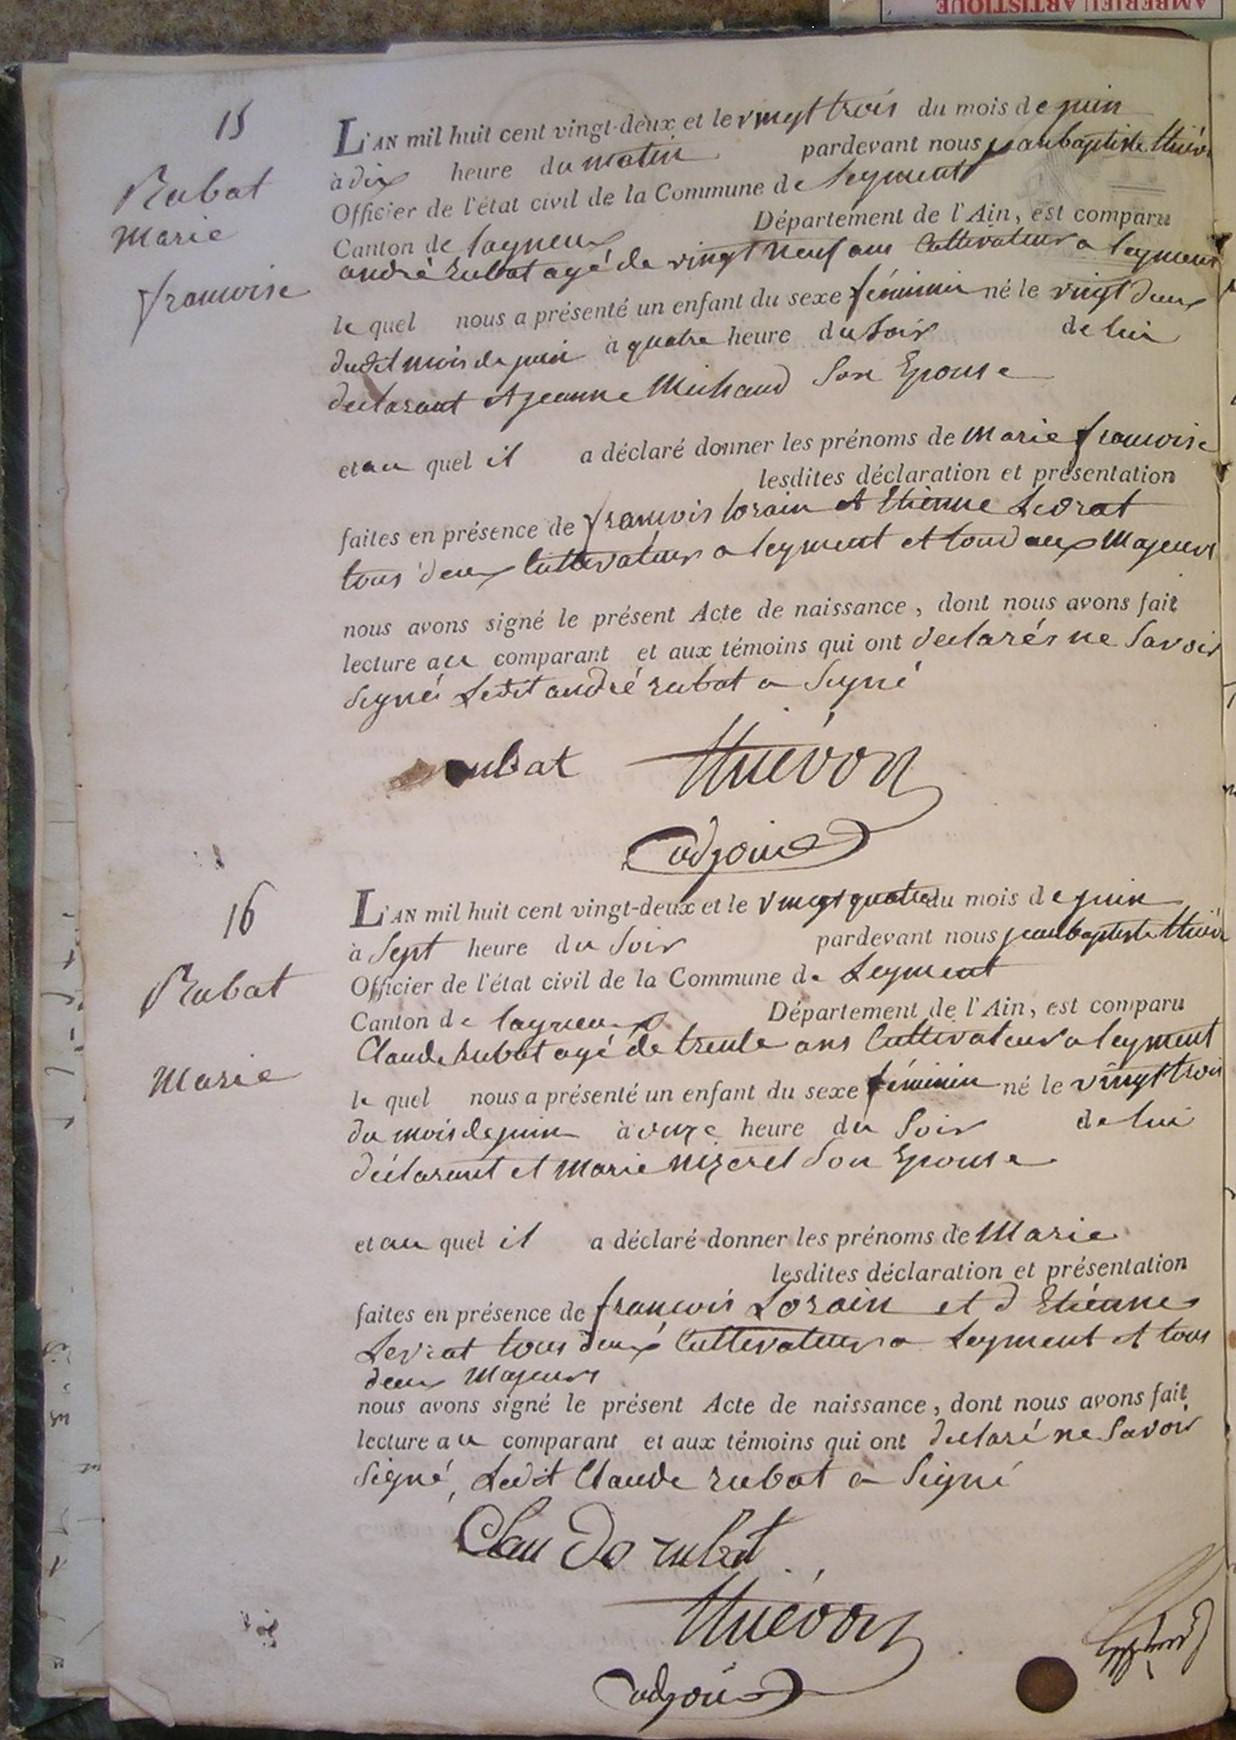 AMBERIEU ARTISTIQUE
15
Rubat
Marie
francoise
L'AN mil huit cent vingt-deux et le vingt trois du mois de juin
à dix heure du matin pardevant nous jean baptiste thiév
Officier de l'état civil de la Commune de leyment
Canton de lagneux Département de l'Ain, est comparu
andré rubat agé de vingt neuf ans Cultivateur a leyment
le quel nous a présenté un enfant du sexe féminin né le vingt deux
dudit mois de juin à quatre heure du soir de lui
declarant et jeanne Michaud son Epouse
et au quel il a déclaré donner les prénoms de Marie francoise
lesdites déclaration et présentation
faites en présence de francois lorain et Etienne Levrat
tous deux Cultivateur a leyment et tous deux Majeurs
nous avons signé le présent Acte de naissance, dont nous avons fait
lecture au comparant et aux témoins qui ont declarés ne savoir
signé Ledit andré rubat a signé
rubat thiévon
adjoint
16
Rubat
Marie
L'AN mil huit cent vingt-deux et le vingt quatre du mois de juin
à sept heure du soir pardevant nous jean baptiste thiév
Officier de l'état civil de la Commune de Leyment
Canton de lagneux Département de l'Ain, est comparu
Claude rubat agé de trente ans Cultivateur a leyment
le quel nous a présenté un enfant du sexe féminin né le vingt trois
du mois de juin à onze heure du soir de lui
déclarant et Marie Mizerel son Epouse
et au quel il a déclaré donner les prénoms de Marie
lesdites déclaration et présentation
faites en présence de francois Lorain et d Etienne
Levrat tous deux Cultivateur a Leyment et tous
deux Majeurs
nous avons signé le présent Acte de naissance, dont nous avons fait
lecture au comparant et aux témoins qui ont declaré ne savoir
signé, Ledit Claude rubat a signé
Claude rubat
thiévon
adjoint